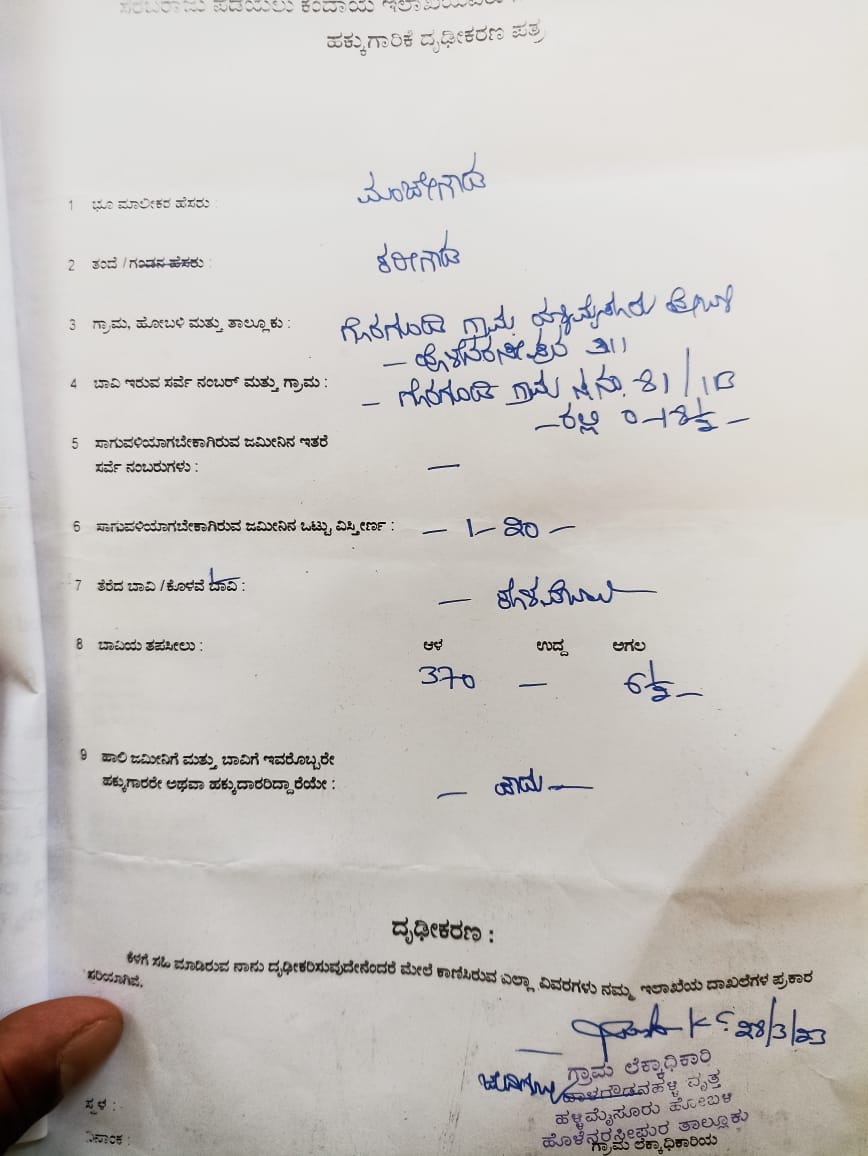 ಸರಬರಾಜು ಪಡೆಯಲು ಕಂದಾಯ ಇಲಾಖೆಯವರ
ಹಕ್ಕುಗಾರಿಕೆ ದೃಢೀಕರಣ ಪತ್ರ
1 ಭೂ ಮಾಲೀಕರ ಹೆಸರು : ಮಂಚೇಗೌಡ
2 ತಂದೆ / ಗಂಡನ ಹೆಸರು : ಕರೀಗೌಡ
3 ಗ್ರಾಮ, ಹೋಬಳಿ ಮತ್ತು ತಾಲ್ಲೂಕು : ಗ್ರಾಮ
4 ಬಾವಿ ಇರುವ ಸರ್ವೆ ನಂಬರ್ ಮತ್ತು ಗ್ರಾಮ : ಗ್ರಾಮ ಸ.ನಂ. 81/1B
ರಲ್ಲಿ 0-18½
5 ಸಾಗುವಳಿಯಾಗಬೇಕಾಗಿರುವ ಜಮೀನಿನ ಇತರೆ
ಸರ್ವೆ ನಂಬರುಗಳು : —
6 ಸಾಗುವಳಿಯಾಗಬೇಕಾಗಿರುವ ಜಮೀನಿನ ಒಟ್ಟು ವಿಸ್ತೀರ್ಣ : — 1-20 —
7 ತೆರೆದ ಬಾವಿ / ಕೊಳವೆ ಬಾವಿ :
8 ಬಾವಿಯ ತಪಸೀಲು : ಆಳ ಉದ್ದ ಅಗಲ
370 — 6½ —
9 ಹಾಲಿ ಜಮೀನಿಗೆ ಮತ್ತು ಬಾವಿಗೆ ಇವರೊಬ್ಬರೇ
ಹಕ್ಕುಗಾರರೇ ಅಥವಾ ಹಕ್ಕುದಾರರಿದ್ದಾರೆಯೇ : — ಹೌದು —
ದೃಢೀಕರಣ :
ಕೆಳಗೆ ಸಹಿ ಮಾಡಿರುವ ನಾನು ದೃಢೀಕರಿಸುವುದೇನೆಂದರೆ ಮೇಲೆ ಕಾಣಿಸಿರುವ ಎಲ್ಲಾ ವಿವರಗಳು ನಮ್ಮ ಇಲಾಖೆಯ ದಾಖಲೆಗಳ ಪ್ರಕಾರ
ಸರಿಯಾಗಿವೆ.
28/3/23
ಗ್ರಾಮ ಲೆಕ್ಕಾಧಿಕಾರಿ
ವೃತ್ತ
ಹಳ್ಳಿಮೈಸೂರು ಹೋಬಳಿ
ಸ್ಥಳ :
ಹೊಳೆನರಸೀಪುರ ತಾಲ್ಲೂಕು
ದಿನಾಂಕ : ಗ್ರಾಮ ಲೆಕ್ಕಾಧಿಕಾರಿಯ